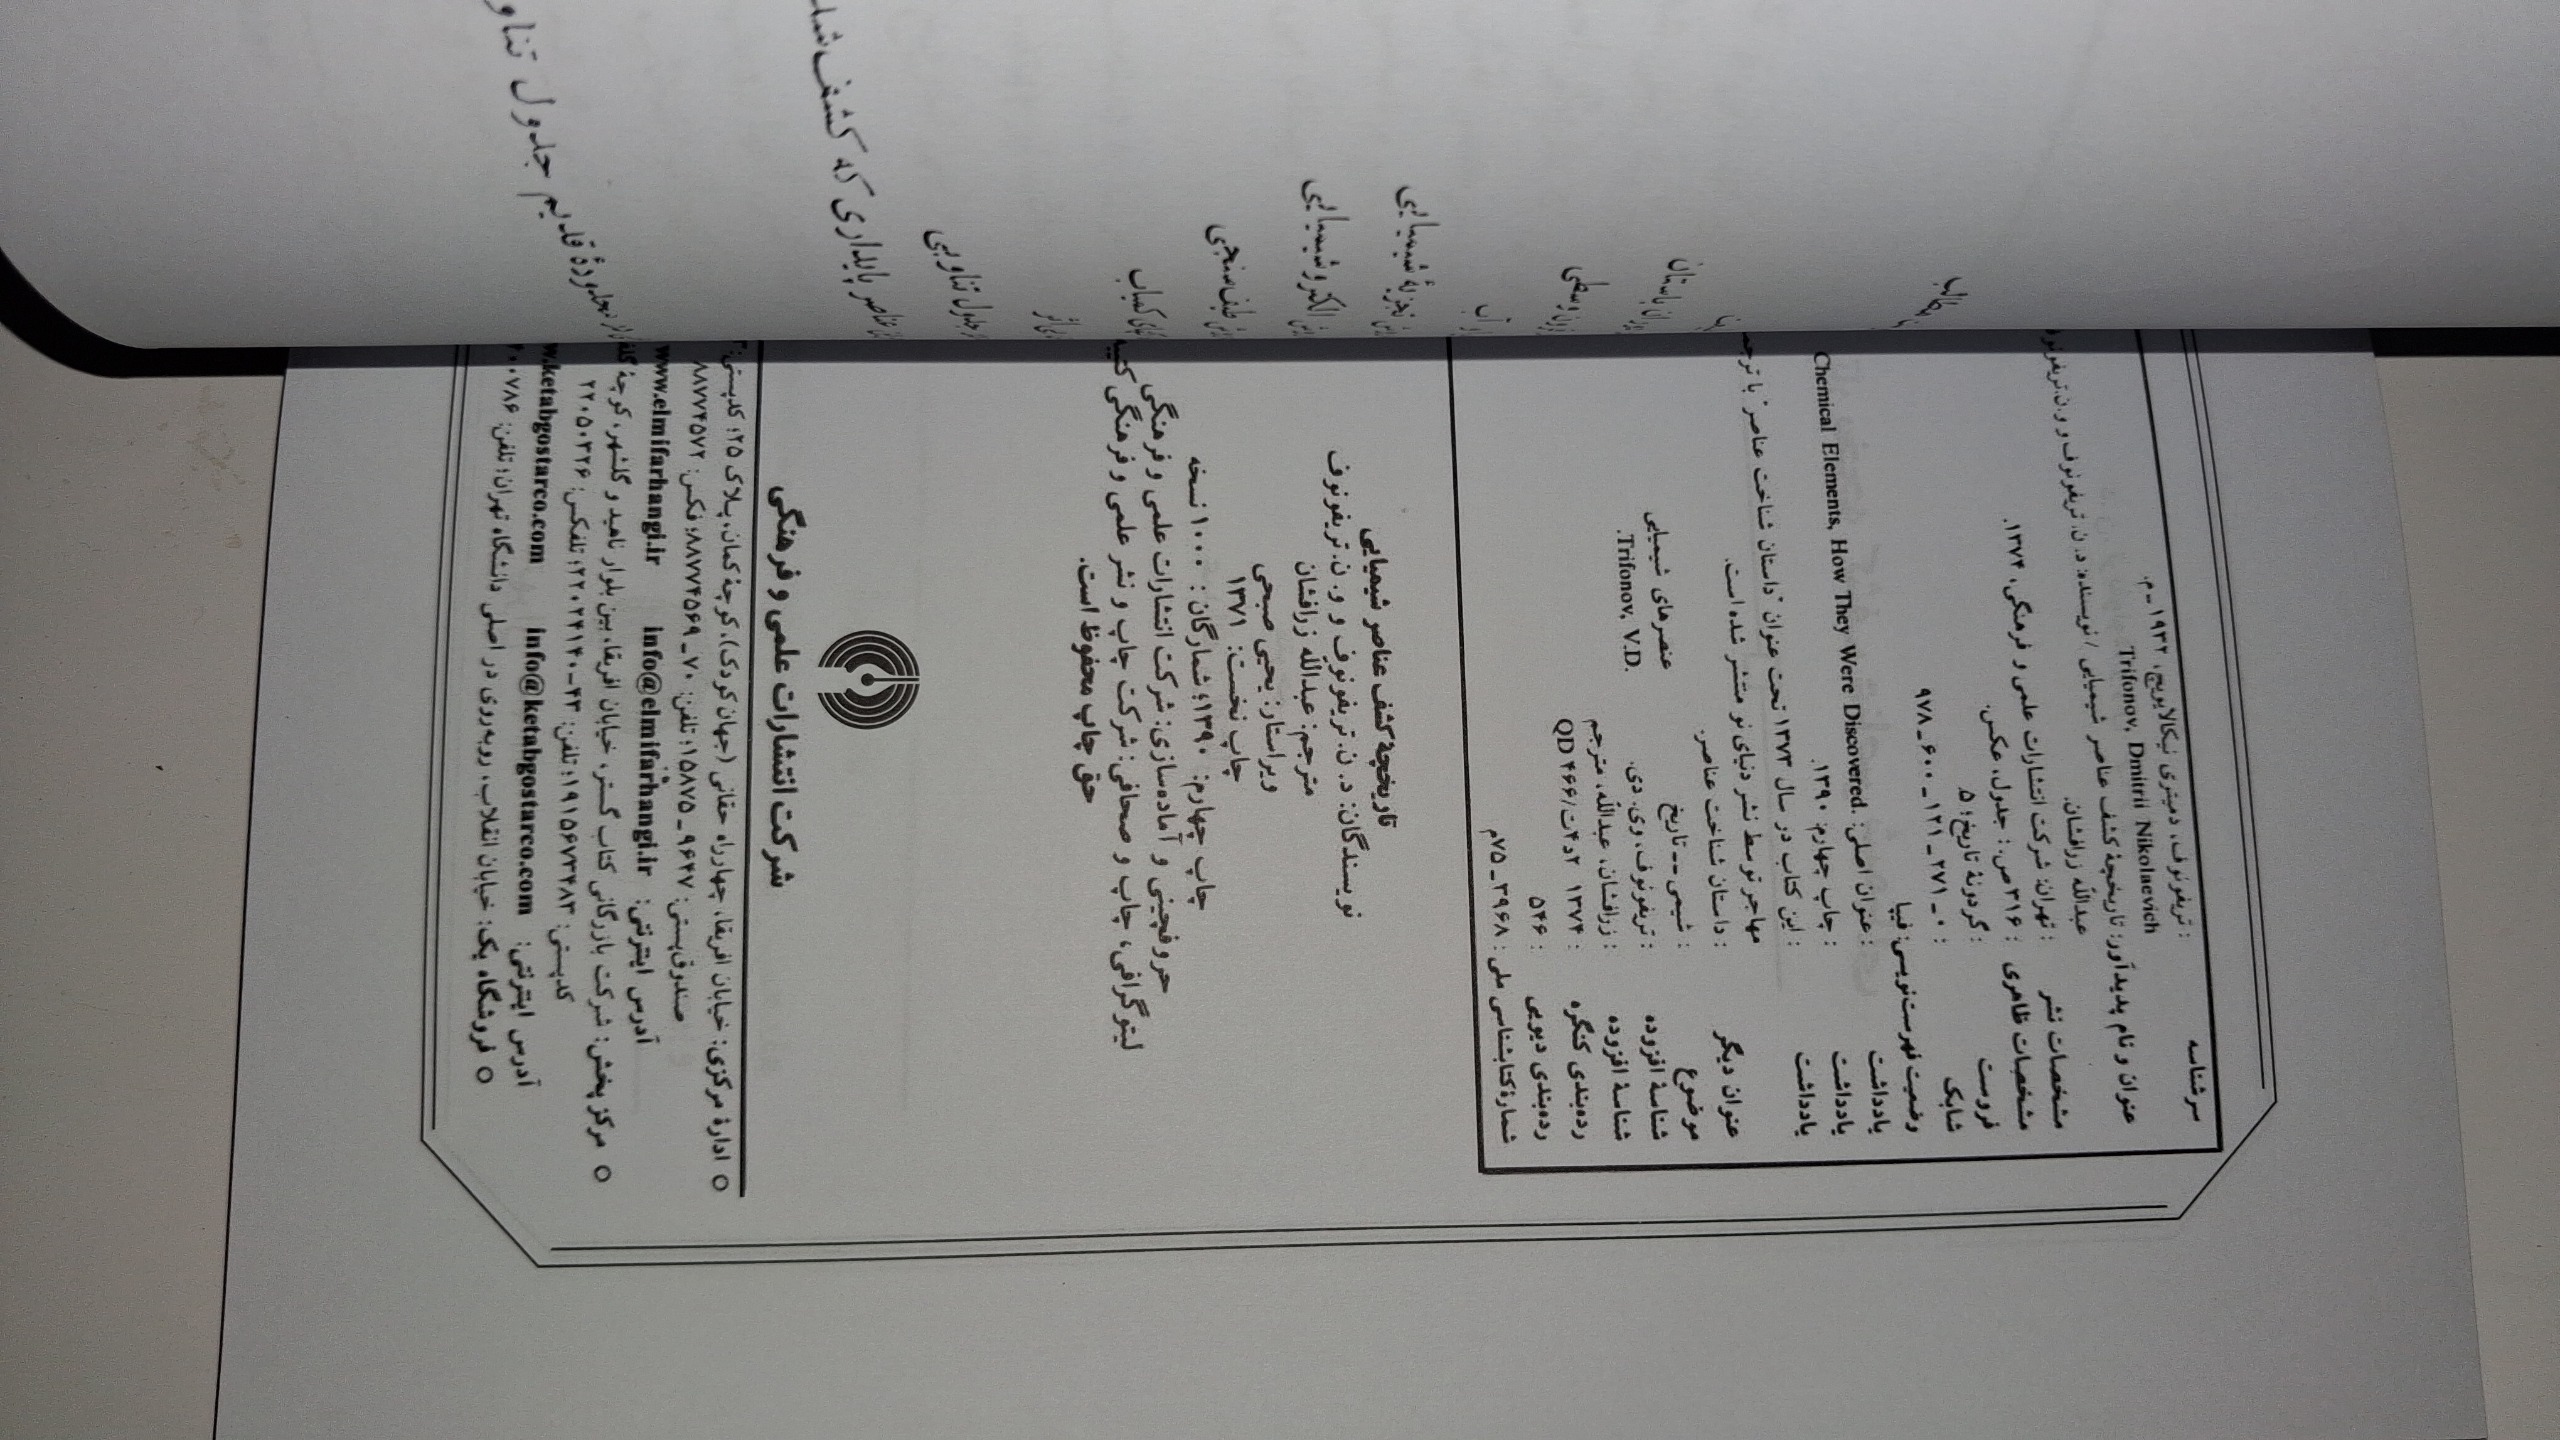 سرشناسه : تریفونوف، دمیتری نیکالایویچ، ۱۹۳۲ ـ م.
Trifonov, Dmitrii Nikolaevich
عنوان و نام پدیدآور: تاریخچهٔ کشف عناصر شیمیایی / نویسنده: د. ن. تریفونوف و و. ن. تریفونوف
عبدالله زرافشان.
مشخصات نشر : تهران: شرکت انتشارات علمی و فرهنگی، ۱۳۷۴.
مشخصات ظاهری : ۳۱۶ ص.: جدول، عکس.
فروست : گردونهٔ تاریخ؛ ۵.
شابک : ۰ ـ ۲۷۱ ـ ۱۲۱ ـ ۶۰۰ ـ ۹۷۸
وضعیت فهرست‌نویسی: فیپا
یادداشت : عنوان اصلی: Chemical Elements, How They Were Discovered.
یادداشت : چاپ چهارم: ۱۳۹۰.
یادداشت : این کتاب در سال ۱۳۷۳ تحت عنوان "داستان شناخت عناصر" با
مهاجر توسط نشر دنیای نو منتشر شده است.
عنوان دیگر : داستان شناخت عناصر.
موضوع : شیمی ـ ـ تاریخ عنصرهای شیمیایی
شناسهٔ افزوده : تریفونوف، وی. دی. Trifonov, V.D.
شناسهٔ افزوده : زرافشان، عبدالله، مترجم
رده‌بندی کنگره : ۱۳۷۴ ۲د۴ت/QD ۴۶۶
رده‌بندی دیویی : ۵۴۶
شمارهٔ کتابشناسی ملی : ۳۹۶۸ ـ ۷۵م
تاریخچهٔ کشف عناصر شیمیایی
نویسندگان: د. ن. تریفونوف و و. ن. تریفونوف
مترجم: عبدالله زرافشان
ویراستار: یحیی صبحی
چاپ نخست: ۱۳۷۱
چاپ چهارم: ۱۳۹۰؛ شمارگان: ۱۰۰۰ نسخه
حروفچینی و آماده‌سازی: شرکت انتشارات علمی و فرهنگی
لیتوگرافی، چاپ و صحافی: شرکت چاپ و نشر علمی و فرهنگی
حق چاپ محفوظ است.
شرکت انتشارات علمی و فرهنگی
○ ادارهٔ مرکزی: خیابان افریقا، چهارراه حقانی (جهان کودک)، کوچهٔ کمان، پلاک ۲۵؛ کدپستی:
صندوق‌پستی: ۹۶۴۷ ـ ۱۵۸۷۵؛ تلفن: ۷۰ ـ ۸۸۷۷۴۵۶۹؛ فکس: ۸۸۷۷۴۵۷۲
آدرس اینترنتی: info@elmifarhangi.ir www.elmifarhangi.ir
○ مرکز پخش: شرکت بازرگانی کتاب گستر، خیابان افریقا، بین بلوار ناهید و گلشهر، کوچهٔ
کدپستی: ۱۹۱۵۶۷۳۴۸۳؛ تلفن: ۴۳ ـ ۲۲۰۲۴۱۴۰؛ تلفکس: ۲۲۰۵۰۳۲۶
آدرس اینترنتی: info@ketabgostarco.com w.ketabgostarco.com
○ فروشگاه یک: خیابان انقلاب، روبه‌روی در اصلی دانشگاه تهران؛ تلفن:
شیمیایی
الکتروشیمیایی
طیف‌سنجی
جدول تناوبی
عناصر پایداری که کشف
محدودهٔ قدیم جدول